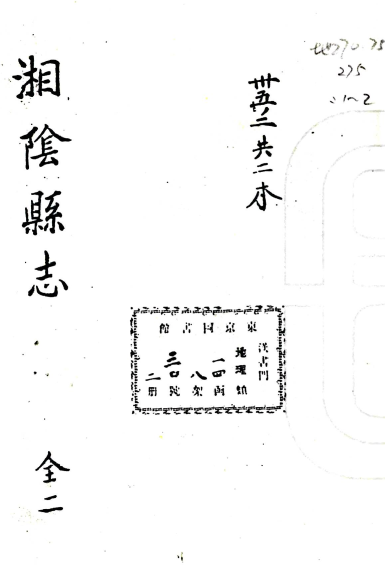 地270.75
275
:1~2
卅五二共二本
湘陰縣志
全二
東京国書館
漢書門
地理類
一四函
八架
三〇號
二册